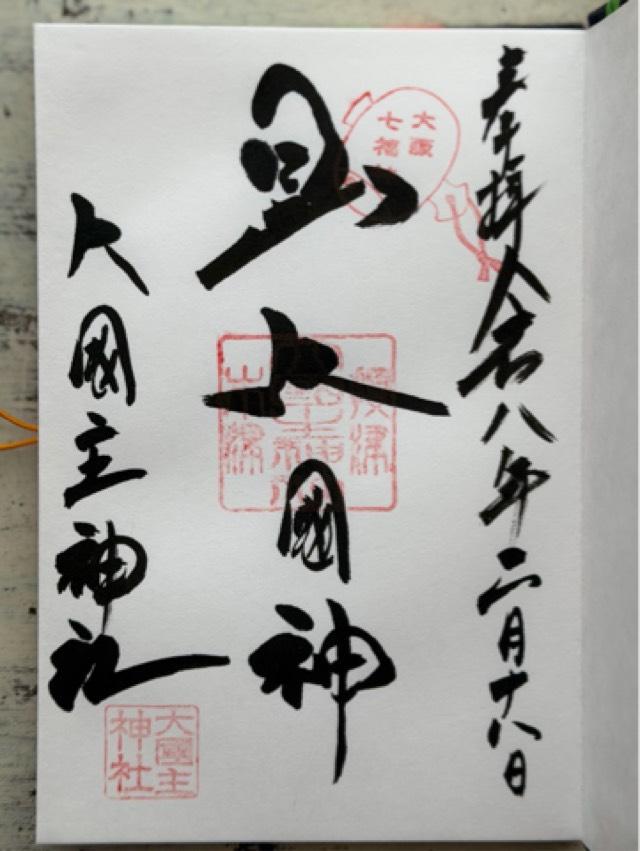 奉拝 令和八年二月十八日
大阪
七福
大國神
大國主神社
大國主
神社